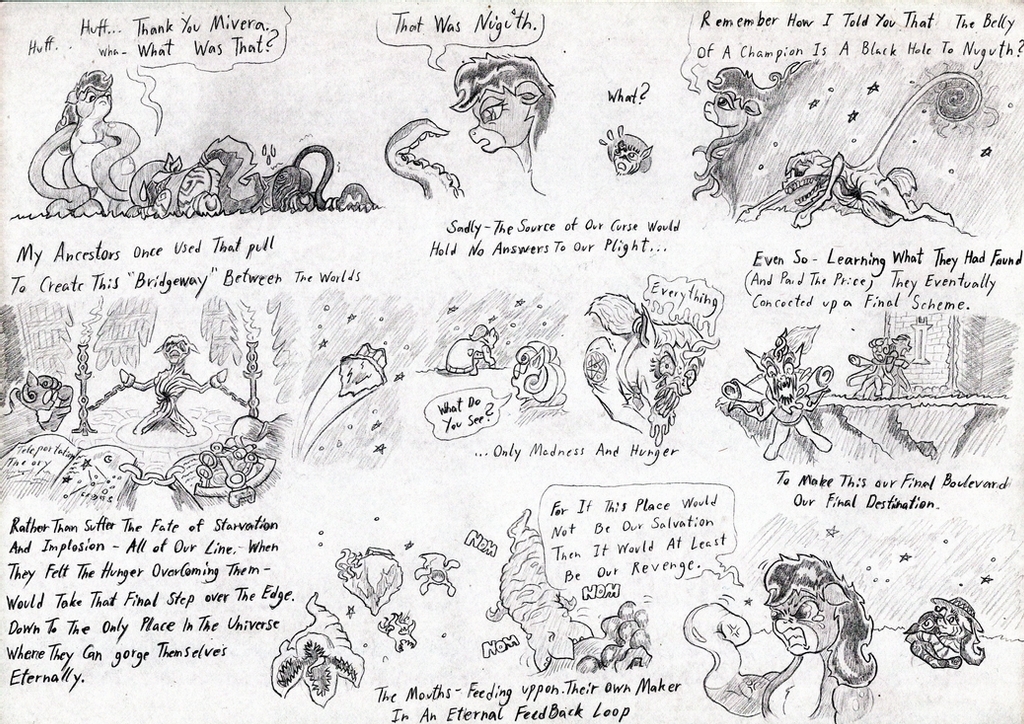 Huff.. Huff... Thank You Mivera.
Wha- What Was That?
That Was Nuguth.
What?
Remember How I Told You That The Belly
Of A Champion Is A Black Hole To Nuguth?
My Ancestors Once Used That pull
To Create This "Bridgeway" Between The Worlds
Sadly - The Source of Our Curse Would
Hold No Answers To Our Plight...
Even So - Learning What They Had Found
(And Paid The Price) They Eventually
Concocted up a Final Scheme.
Teleportation
Theory
What Do
You See?
Everything
...Only Madness And Hunger
To Make This our Final Boulevard
Our Final Destination.
Rather Than Suffer The Fate of Starvation
And Implosion - All of Our Line, - When
They Felt The Hunger Overcoming Them -
Would Take That Final Step over The Edge.
Down To The Only Place In The Universe
Where They Can gorge Themselves
Eternally.
NOM
NOM
NOM
For If This Place Would
Not Be Our Salvation
Then It Would At Least
Be Our Revenge.
The Mouths - Feeding uppon Their Own Maker
In An Eternal FeedBack Loop